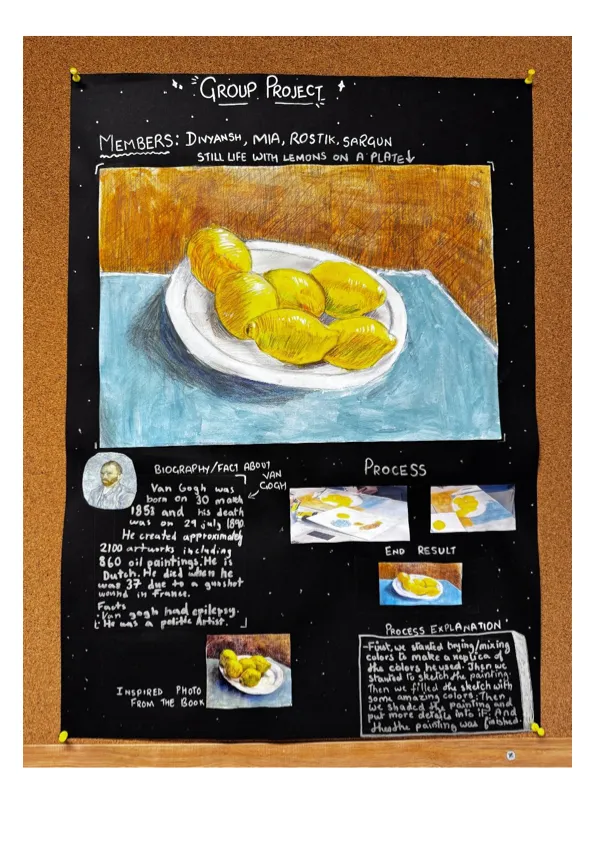 GROUP PROJECT
MEMBERS: DIVYANSH, MIA, ROSTIK, SARGUN
STILL LIFE WITH LEMONS ON A PLATE↓
BIOGRAPHY/FACT ABOUT
VAN
GOGH
Van Gogh was
born on 30 march
1853 and his death
was on 29 july 1890.
He created approximately
2100 artworks including
860 oil paintings. He is
Dutch. He died when he
was 37 due to a gunshot
wound in France.
Facts
Van gogh had epilepsy.
He was a politic Artist.
PROCESS
END RESULT
INSPIRED PHOTO
FROM THE BOOK
PROCESS EXPLANATION
-First, we started trying/mixing
colors to make a replica of
the colors he used. Then we
started to sketch the painting.
Then we filled the sketch with
some amazing colors. Then
we shaded the painting and
put more details into it. And
the painting was finished.